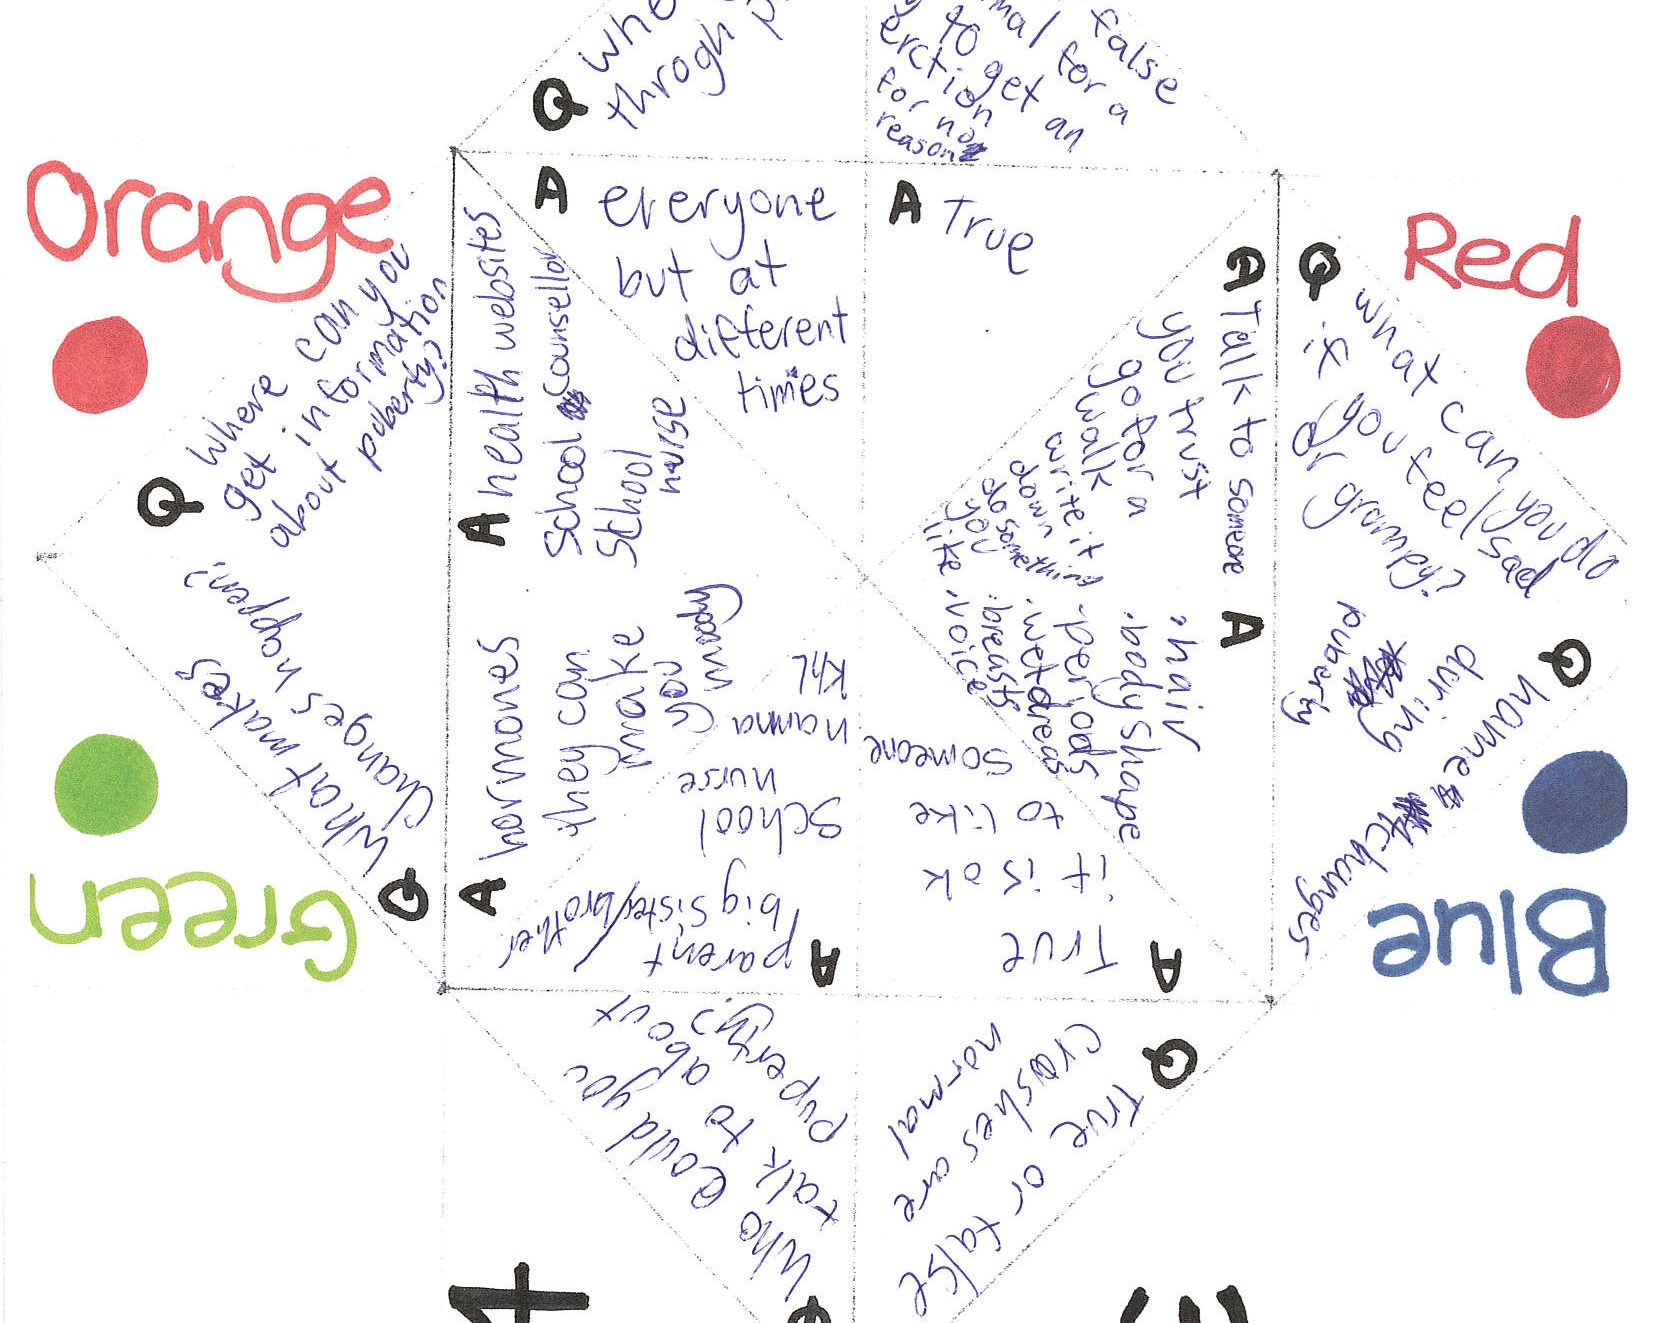 Q
throgh
false
mal for a
to get an
erction
for no
reason
Orange
Q where can you
get information
about puberty?
A health websites
School Counsellor
School
nurse
A everyone
but at
different
times
A True
Red
Q what can you do
if you feel sad
or grumpy?
A Talk to someone
you trust
go for a
walk
write it
down
do something
you
like
A
• hair
• body shape
• periods
• wet dreas
• breasts
• voice
Q
during
puberty
changes
Blue
Green
Q What makes
changes happen?
A hormones
they can
make
you
moody
A parent
big sister/brother
School
nurse
nanna
KhL
A True
it is ok
to like
someone
Who could you
talk to about
puperty?
Q True or false
crashes are
normal
4
3